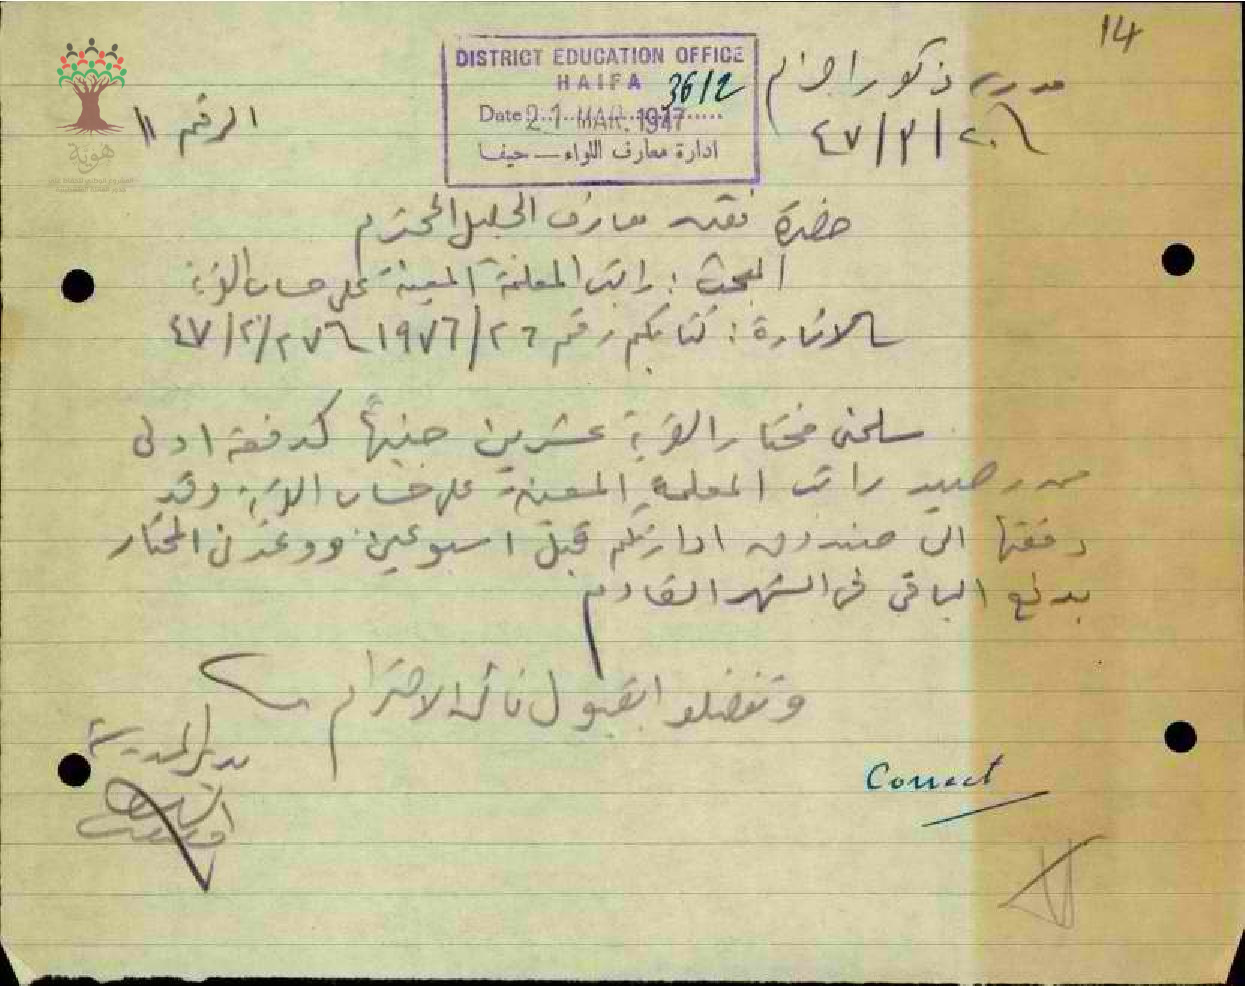 14
DISTRICT EDUCATION OFFICE
HAIFA
36/2
Date 21 MAR. 1947
ادارة معارف اللواء — حيفا
مدرسة ذكور اجزم
٢٠/٣/٤٧
الرقم ١١
هوية
حضرة مفتش معارف الجليل المحترم
البحث : راتب المعلمة المعينة على حساب القرية
الاشارة : كتابكم رقم ٢٦/١٩٧٦
سلمني مختار القرية عشرين جنيهاً كدفعة اولى
من رصيد راتب المعلمة المعينة على حساب القرية وقد
دفعتها الى صندوق ادارتكم قبل اسبوعين ووعدني المختار
بدفع الباقي في الشهر القادم
وتفضلوا بقبول فائق الاحترام
مدير المدرسة
Correct